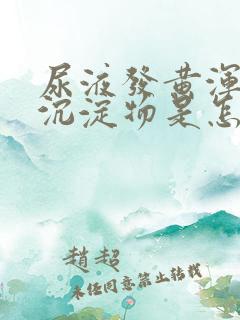 尿液發黃渾
沉淀物是怎
趙超
未經同意禁止轉載